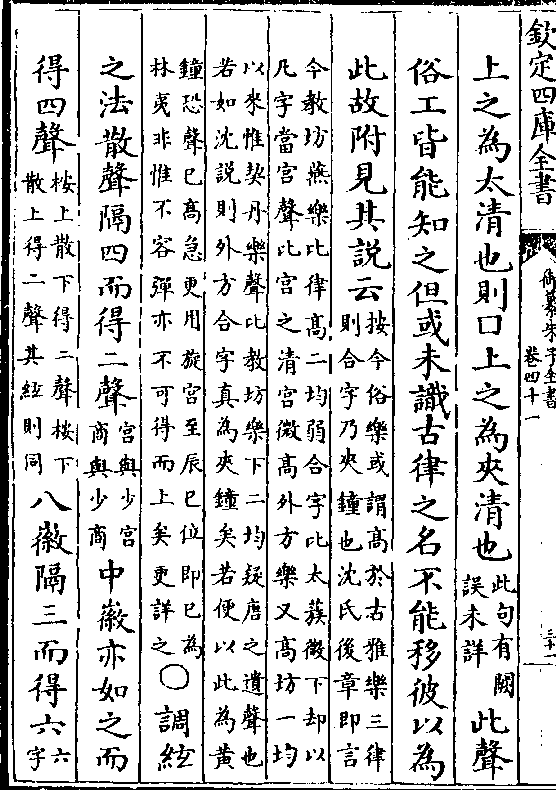 欽定四庫全書
御纂朱子全書
卷四十一
三十一
上之為太清也則口上之為夾清也此句有闕
誤未詳此聲
俗工皆能知之但或未識古律之名不能移彼以為
此故附見其說云按今俗樂或謂高於古雅樂三律
則合字乃夾鍾也沈氏後章即言
今教坊燕樂比律髙二均弱合字比太蔟微下却以
凡字當宫聲比宫之清宫微髙外方樂又髙坊一均
以來惟契丹樂聲比教坊樂下二均疑唐之遺聲也
若如沈說則外方合字真為夾鐘矣若便以此為黄
鐘恐聲已髙急更用旋宫至辰巳位即已為
林夷非惟不容彈亦不可得而上矣更詳之〇調絃
之法散聲隔四而得二聲宫與少宫
商與少商中徽亦如之而
得四聲按上散下得二聲按下
散上得二聲其絃則同八徽隔三而得六六
字